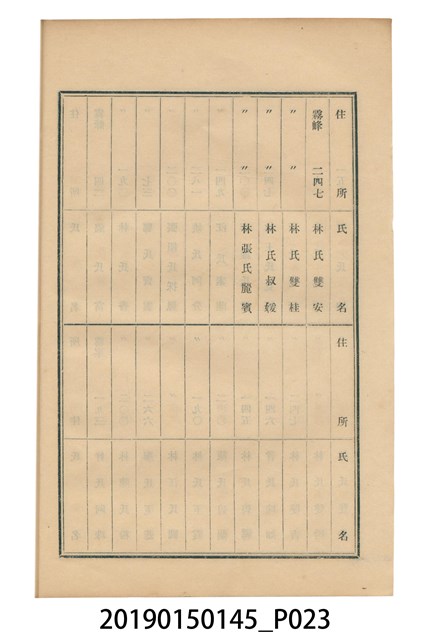 住所 氏名
霧峰 二四七 林氏雙安
〃 〃 林氏雙桂
〃 〃 林氏叔媛
〃 〃 林張氏麗賓
住所 氏名
20190150145_P023